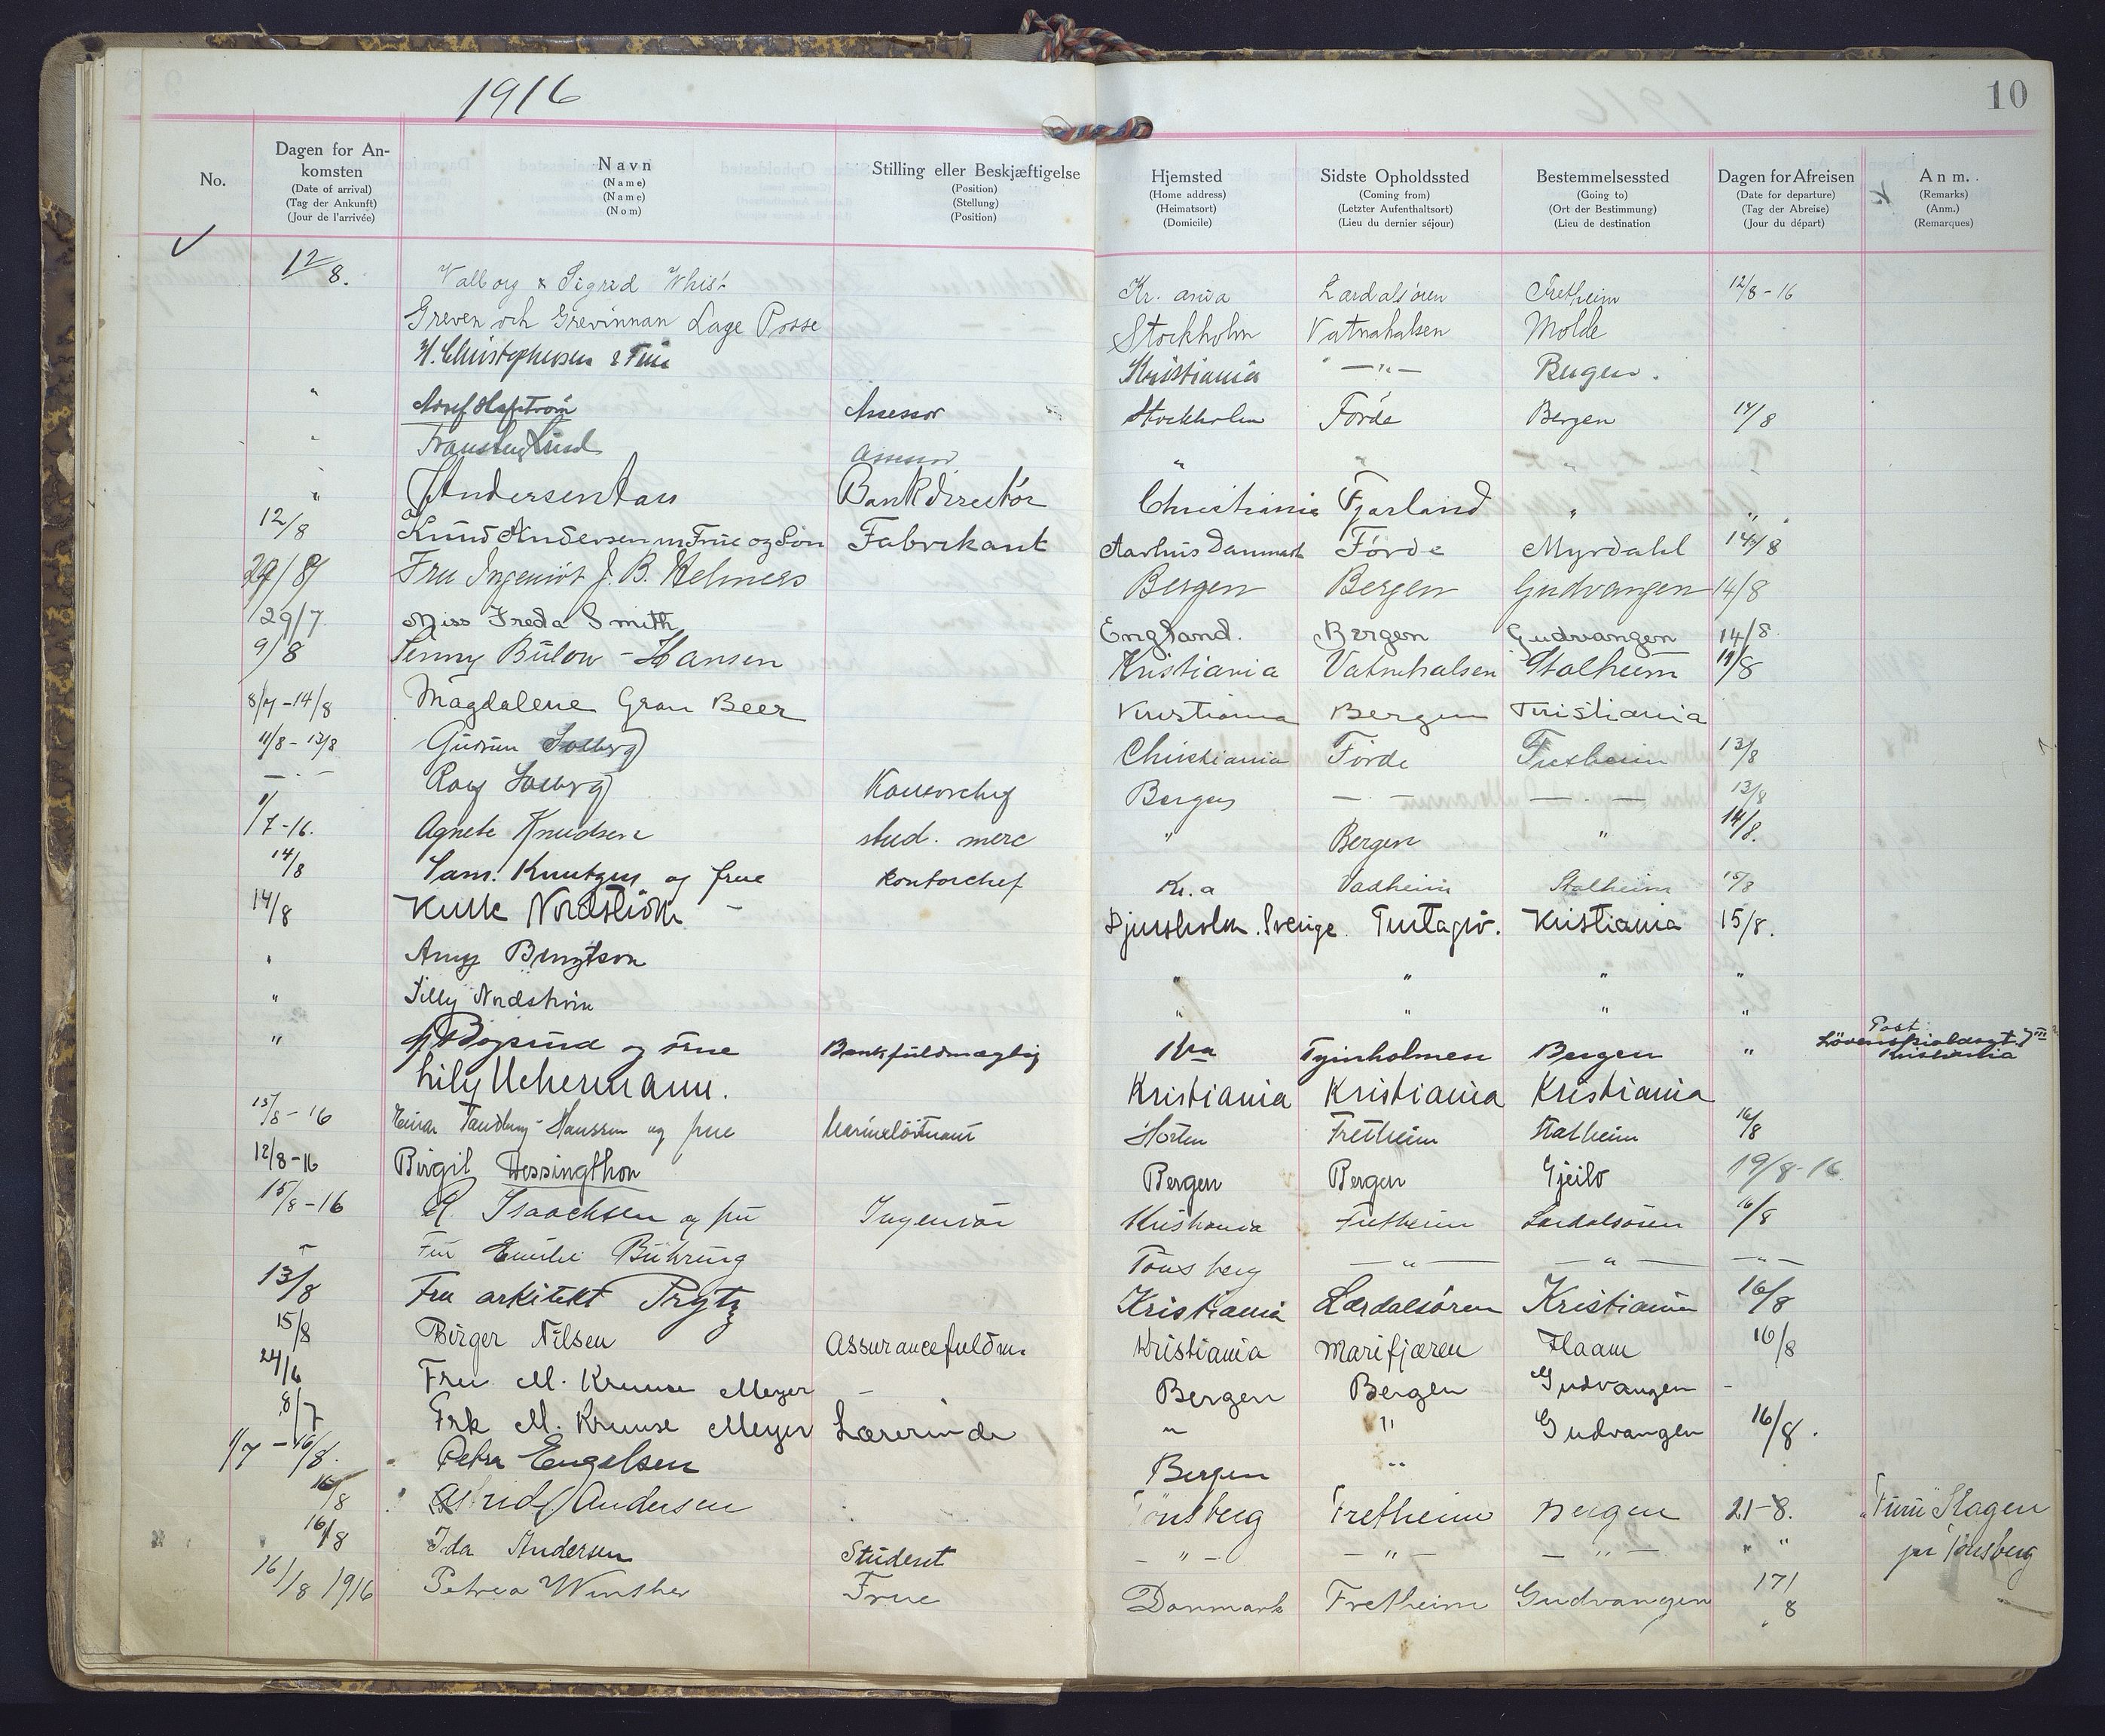 1916
10
No. Dagen for Ankomsten (Date of arrival) (Tag der Ankunft) (Jour de l'arrivée) Navn (Name) (Name) (Nom) Stilling eller Beskjæftigelse (Position) (Stellung) (Position) Hjemsted (Home address) (Heimatsort) (Domicile) Sidste Opholdssted (Coming from) (Letzter Aufenthaltsort) (Lieu du dernier séjour) Bestemmelsessted (Going to) (Ort der Bestimmung) (Lieu de destination Dagen for Afreisen (Date for departure) (Tag der Abreise) (Jour du départ) Anm. (Remarks) (Anm.) (Remarques)
12/8. Valborg & Sigrid Whist Kr. ania Lærdalsören Fretheim 12/8-16
Greven och Grevinnan Lage Posse Stockholm Vatnahalsen Molde
H. Christophersen & Frue Kristiania —"— Bergen.
" Hafström Assessor Stockholm Förde Bergen 14/8
" Lind assessor " " "
" Andersen Aas Bankdirektör Christiania Fjærland " "
12/8 Knud Andersen m Frue og Sön Fabrikant Aarhus Danmark Förde Myrdahl 14/8
29/8 Fru Ingeniör J. B. Helmers Bergen Bergen Gudvangen 14/8
29/7. Miss Freda Smith England. Bergen Gudvangen 14/8.
9/8 Jenny Bülow-Hansen Kristiania Vatnehalsen Stalheim 14/8
8/7-14/8 Magdalene Gran Beer Kristiania Bergen Kristiania
11/8-13/8 Gudrun Solberg Christiania Förde Fretheim 13/8
—"— Rolf Solberg Kontorchef Bergen — — —"— 13/8
1/7-16. Agnete Knudsen stud. merc " Bergen " 14/8.
14/8 Sam. Knutzen og frue kontorchef Kr.a Vadheim Stalheim 15/8
14/8 Nordström - Djursholm. Sverige. Turtagrö. Kristiania 15/8.
" Amy Bengtson " " " "
" Lilly Nordström " " " "
" Bogsrud og frue Bankfuldmægtig Kra Tyinholmen Bergen " Post Lövenskioldsgt. 7 III Kristiania
Lily Uchermann. Kristiania Kristiania Kristiania
15/8-16 Einar Tandberg-Hanssen og frue Marinelöitnant Horten Fretheim Stalheim 16/8
12/8-16 Birgit Wessingthon Bergen Bergen Gjeilo 19/8-16.
15/8-16 R. Isaachsen og fru Ingeniör Kristiania Fretheim Lærdalsören 16/8
" Fru Emilie Bühring Tönsberg —"— —"— —"—
13/8 Fru arkitekt Prytz Kristiania Lærdalsören Kristiania 16/8
15/8 Birger Nilsen Assurancefuldm. Kristiania Marifjæren Flaam 16/8
24/6 Fru M. Kruuse Meyer — Bergen Bergen Gudvangen -
8/7 Frk M. Kruuse Meyer Lærerinde " " Gudvangen 16/8.
1/7-16/8. Petra Engelsen Bergen "
16/8 Astrid Andersen Tönsberg Fretheim Bergen 21-8. "Furu" Slagen
16/8 Ida Andersen Student —"— —"— —"— " " pr Tönsberg
16/8 1916 Petrea Winther Frue Danmark Fretheim Gudvangen 17/8